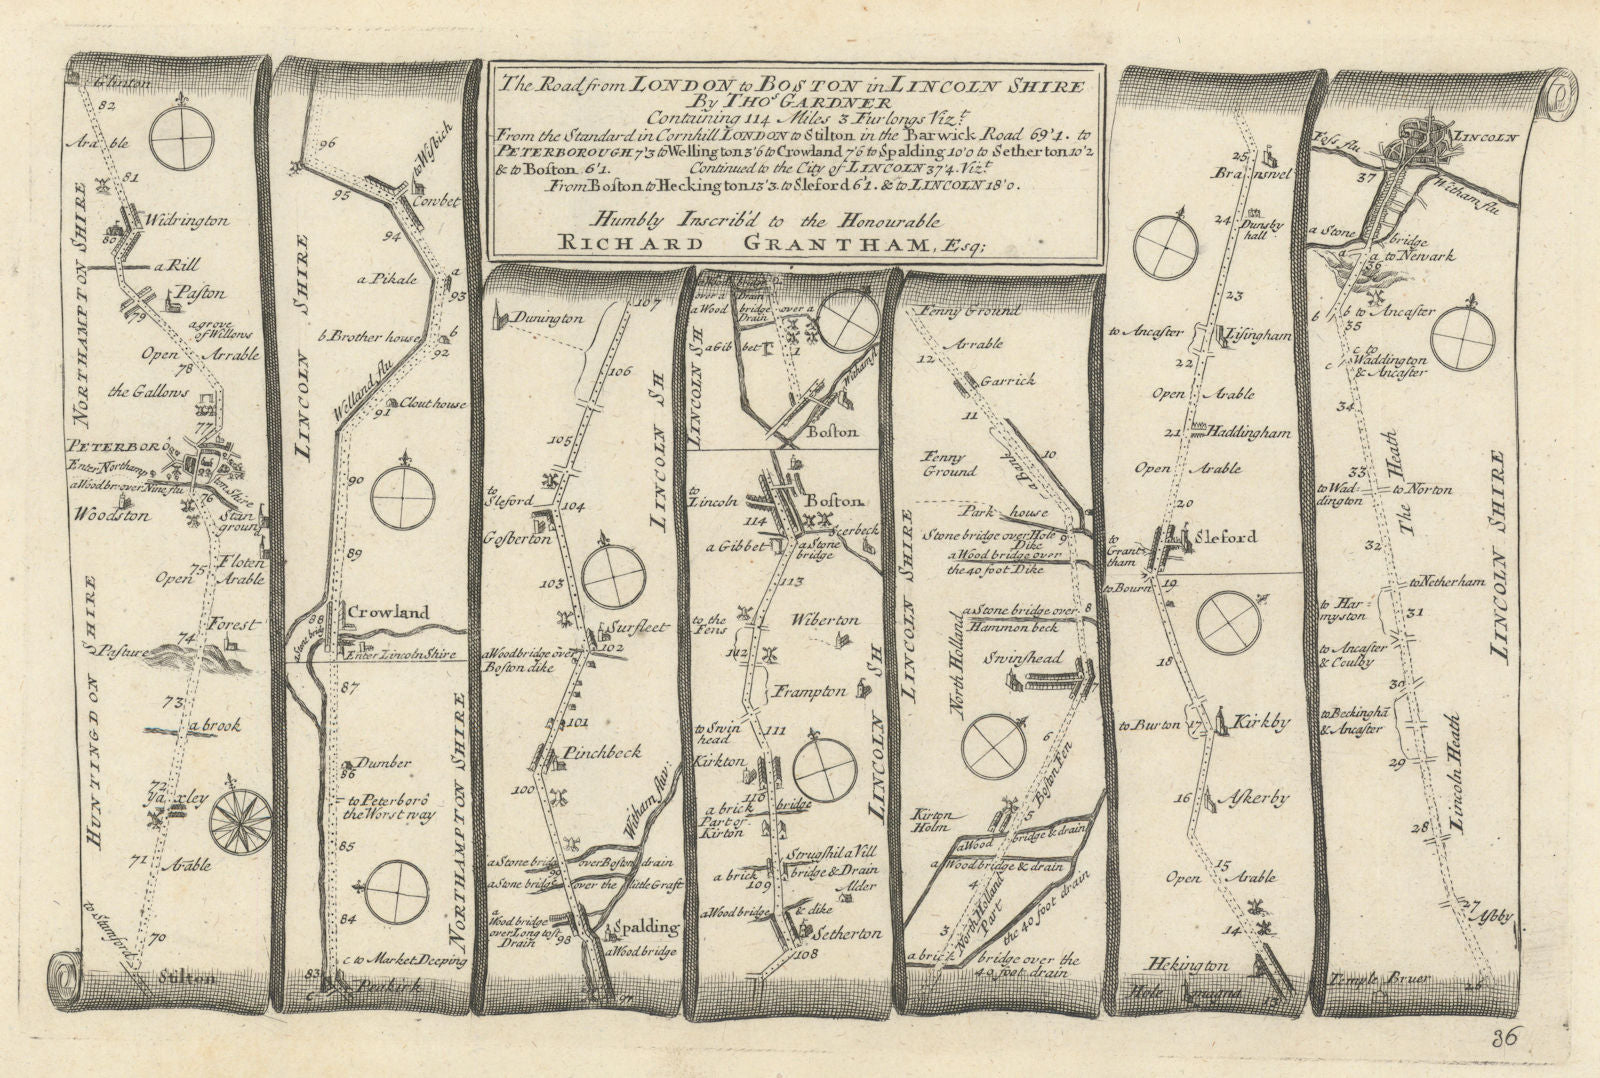 The Road from LONDON to BOSTON in LINCOLN SHIRE
By THOS. GARDNER
Containing 114 Miles 3 Furlongs Vizt.
From the Standard in Cornhill LONDON to Stilton in the Barwick Road 69'1. to
PETERBOROUGH 7'3 to Wellington 3'6 to Crowland 7'6 to Spalding 10'0 to Setherton 10'2
& to Boston 6'1. Continued to the City of LINCOLN 37'4. Vizt.
From Boston to Heckington 13'3. to Sleford 6'1. & to LINCOLN 18'0.
Humbly Inscrib'd to the Honourable
RICHARD GRANTHAM, Esq;
Glinton
82
Arable
81
Widrington
80
a Rill
Paston
79
a grove
of Willows
Open Arrable
78
the Gallows
77
PETERBORO
Enter Northamp
ton Shire
a Wood br over Nine flu
76
Woodston
Stan
ground
Floten
75
Open Arable
Forest
74
Pasture
73
a brook
72
Yaxley
71
Arable
to Stamford
70
Stilton
NORTHAMPTON SHIRE
HUNTINGDON SHIRE
96
to Wisbich
95
Cowbet
94
a Pikale
a
93
b Brother house
b
92
Welland flu
Clout house
91
90
89
Crowland
88
a Stone brig
Enter Lincoln Shire
87
Dumber
86
to Peterboro
the Worst way
85
84
c to Market Deeping
83
c
Peakirk
LINCOLN SHIRE
NORTHAMPTON SHIRE
107
Dunington
106
105
to
Sleford
104
Gosberton
103
Surfleet
102
a Wood bridge over
Boston dike
101
Pinchbeck
100
Witham fluv:
a Stone bridg over Boston drain
99
a Stone bridg over the little Graft
a
Wood bridge
over Long tost
Drain
98
Spalding
a Wood bridge
97
LINCOLN SH
2
a Wood bridge
over a Drain
a Wood bridge over a
Drain
a Gibbet
1
Witham fl
Boston
LINCOLN SH
to
Lincoln
Boston
114
Scerbeck
a Gibbet
a Stone
bridge
113
to the
Fens
Wiberton
112
Frampton
111
to Swin
head
Kirkton
110
a brick bridge
Part of
Kirton
Strugshil a Vill
a brick bridge & Drain
109
Alder
a Wood bridge & dike
Setherton
108
LINCOLN SH
Fenny Ground
12
Arrable
Garrick
11
Fenny
Ground
10
a Bank
Park house
Stone bridge over Hole
Dike
9
a Wood bridge over
the 40 foot Dike
a Stone bridge over
8
Hammon beck
North Holland
Swinshead
7
6
Boston Fen
Kirton
Holm
5
a Wood bridge & drain
a Wood bridge & drain
4
3
North Holland
Part
the 40 foot drain
a brick bridge over the
40 foot drain
LINCOLN SHIRE
25
Branswel
24
Dunsby
hall
23
to Ancaster
Lisingham
22
Open Arable
21
Haddingham
Open Arable
20
Sleford
to
Grant
tham
to Bourn
19
18
to Burton
17
Kirkby
16
Askerby
15
Open Arable
14
Hekington
Hole magna
13
Foss flu
LINCOLN
37
Witham flu
a Stone bridge
a
a to Newark
36
b
b to Ancaster
35
c to
Waddington
& Ancaster
c
34
33
to Wad-
dington
to Norton
The Heath
32
to Netherham
to Har
myston
31
to Ancaster
& Coulby
30
to Beckingha
& Ancaster
29
Lincoln Heath
28
27
Asby
Temple Bruer
26
LINCOLN SHIRE
36